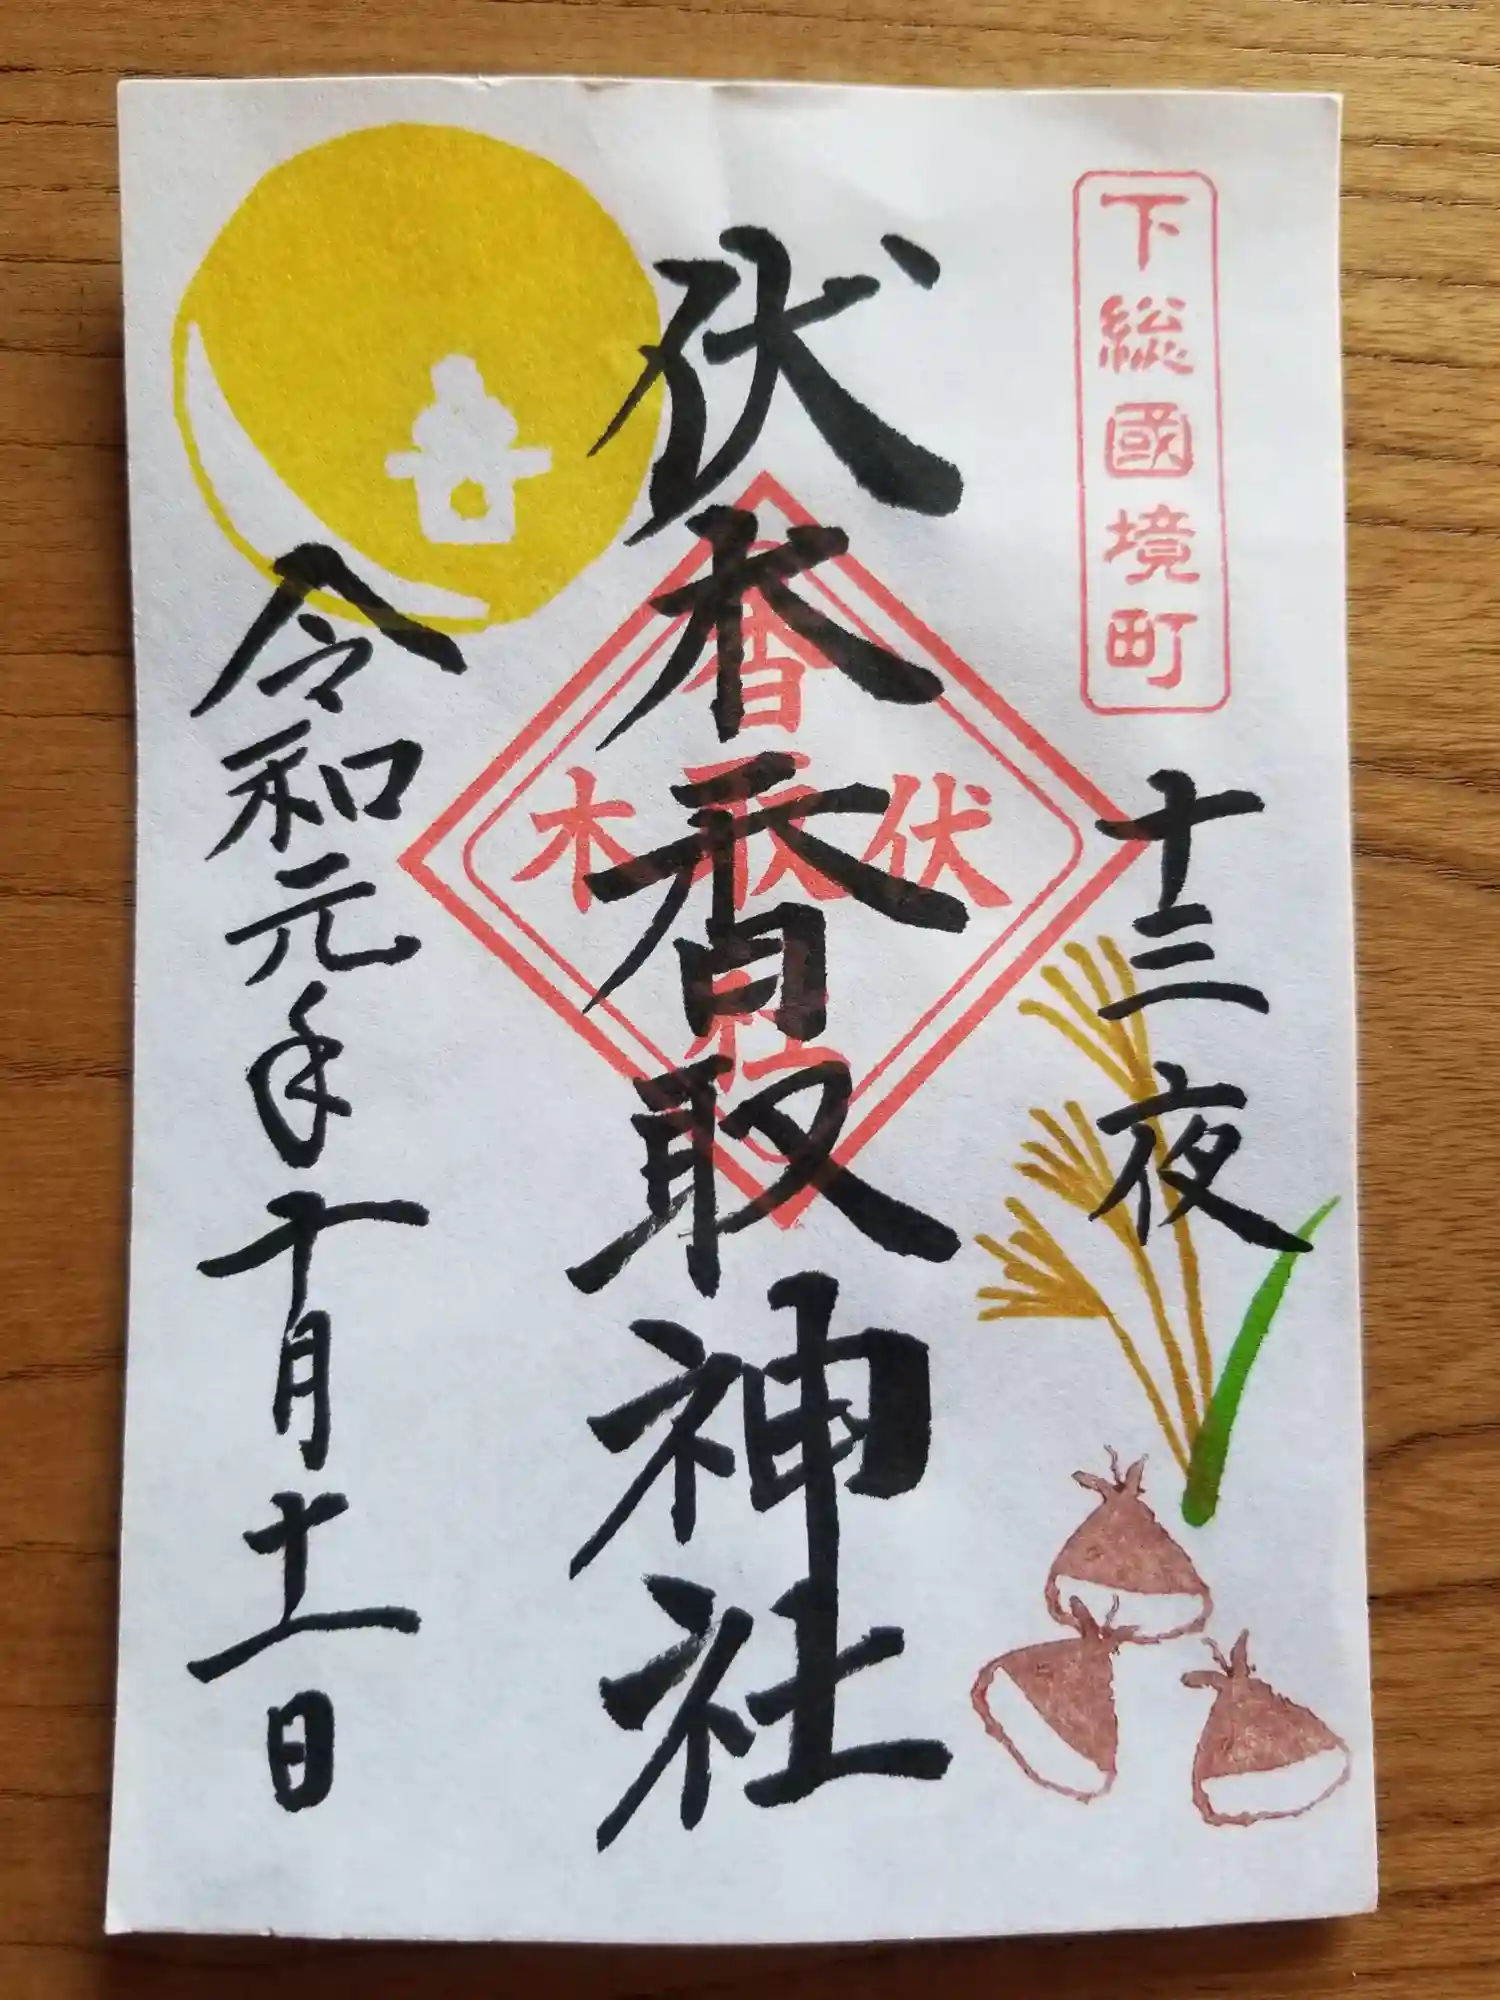 下総國境町
十三夜
伏木香取神社
香取社
伏木
令和元年十月十一日